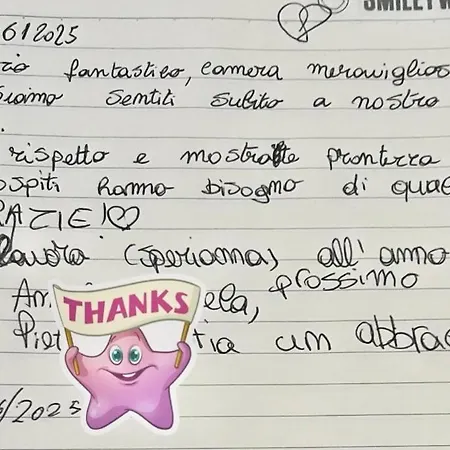 SMILEY W
612025
fantastico, camera meraviglios
siamo sentiti subito a nostro
rispetto e mostrate prontezza
ospiti hanno bisogno di qua
RAZIE!
(speriamo) all'anno
prossimo
An ela,
THANKS
Pie tia un abbra
/2025